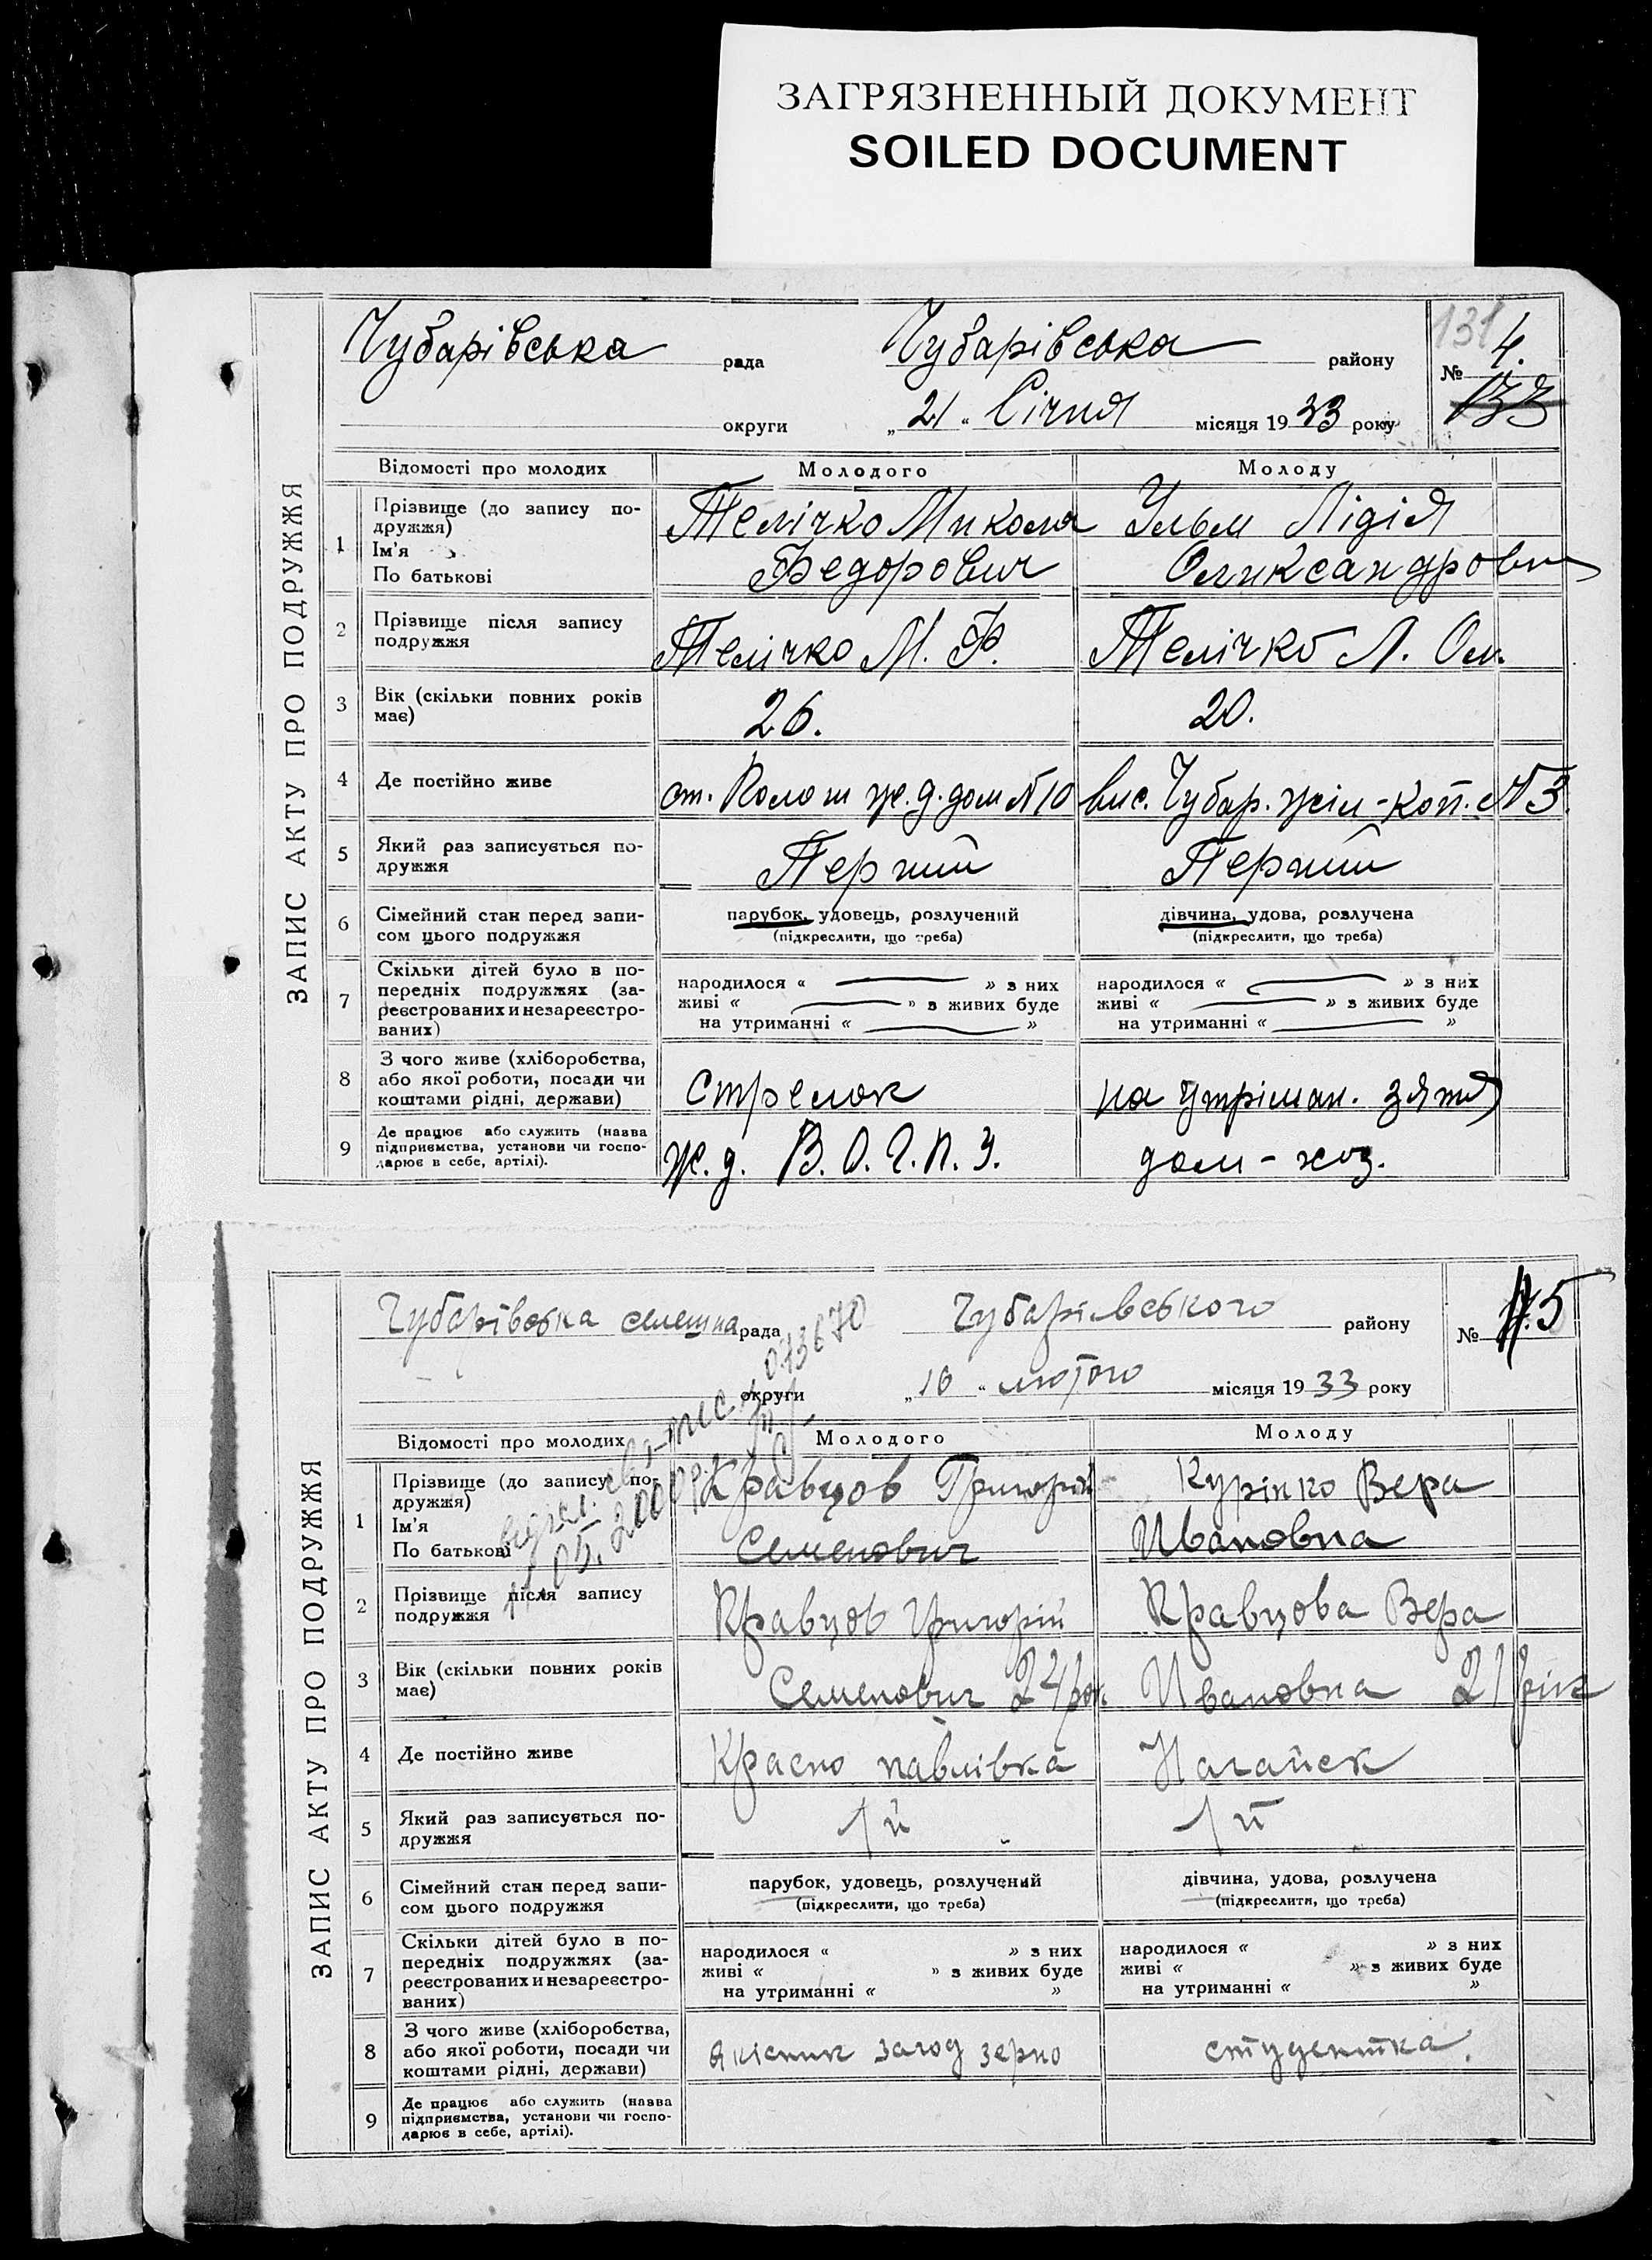 ЗАГРЯЗНЕННЫЙ ДОКУМЕНТ
SOILED DOCUMENT
ЗАПИС АКТУ ПРО ПОДРУЖЖЯ
Чубарівська рада Чубарівська району № 4.
131
133
округи „21“ Січня місяця 1933 року
Відомості про молодих Молодого Молоду
1 Прізвище (до запису по-
дружжя)
Ім'я
По батькові
Телічко Микола
Федорович
Ульм Лідія
Олександровн
2 Прізвище після запису
подружжя
Телічко М. Ф.
Телічко Л. Ол.
3 Вік (скільки повних років
має)
26.
20.
4 Де постійно живе
ст. Колош ж.д. дом №10
вис. Чубар. жіл-коп. №3.
5 Який раз записується по-
дружжя
Перший
Перший
6 Сімейний стан перед запи-
сом цього подружжя
парубок, удовець, розлучений
(підкреслити, що треба)
дівчина, удова, розлучена
(підкреслити, що треба)
7 Скільки дітей було в по-
передніх подружжях (за-
реєстрованих и незареєстро-
ваних)
народилося « » з них
живі « » з живих буде
на утриманні « »
народилося « » з них
живі « » з живих буде
на утриманні « »
8 З чого живе (хліборобства,
або якої роботи, посади чи
коштами рідні, держави)
Стрелок
на утріман. зятя
9 Де працює або служить (назва
підприємства, установи чи госпо-
дарює в себе, артілі).
ж.д.
дом-хоз.
ЗАПИС АКТУ ПРО ПОДРУЖЖЯ
Чубарівська селешна рада Чубарівського району № 5
округи „10“ лютого місяця 1933 року
073670
Відомості про молодих Молодого Молоду
1 Прізвище (до запису по-
дружжя)
Ім'я
По батькові
Кравцов Григорій
Семенович
Курінко Вера
Ивановна
2 Прізвище після запису
подружжя
Кравцов Григорій
Кравцова Вера
3 Вік (скільки повних років
має)
Семенович 24 рок.
Ивановна 21 рік
4 Де постійно живе
Красно павлівка
Нагайск
5 Який раз записується по-
дружжя
1й
1й
6 Сімейний стан перед запи-
сом цього подружжя
парубок, удовець, розлучений
(підкреслити, що треба)
дівчина, удова, розлучена
(підкреслити, що треба)
7 Скільки дітей було в по-
передніх подружжях (за-
реєстрованих и незареєстро-
ваних)
народилося « » з них
живі « » з живих буде
на утриманні « »
народилося « » з них
живі « » з живих буде
на утриманні « »
8 З чого живе (хліборобства,
або якої роботи, посади чи
коштами рідні, держави)
якісник загод зерно
студентка.
9 Де працює або служить (назва
підприємства, установи чи госпо-
дарює в себе, артілі).